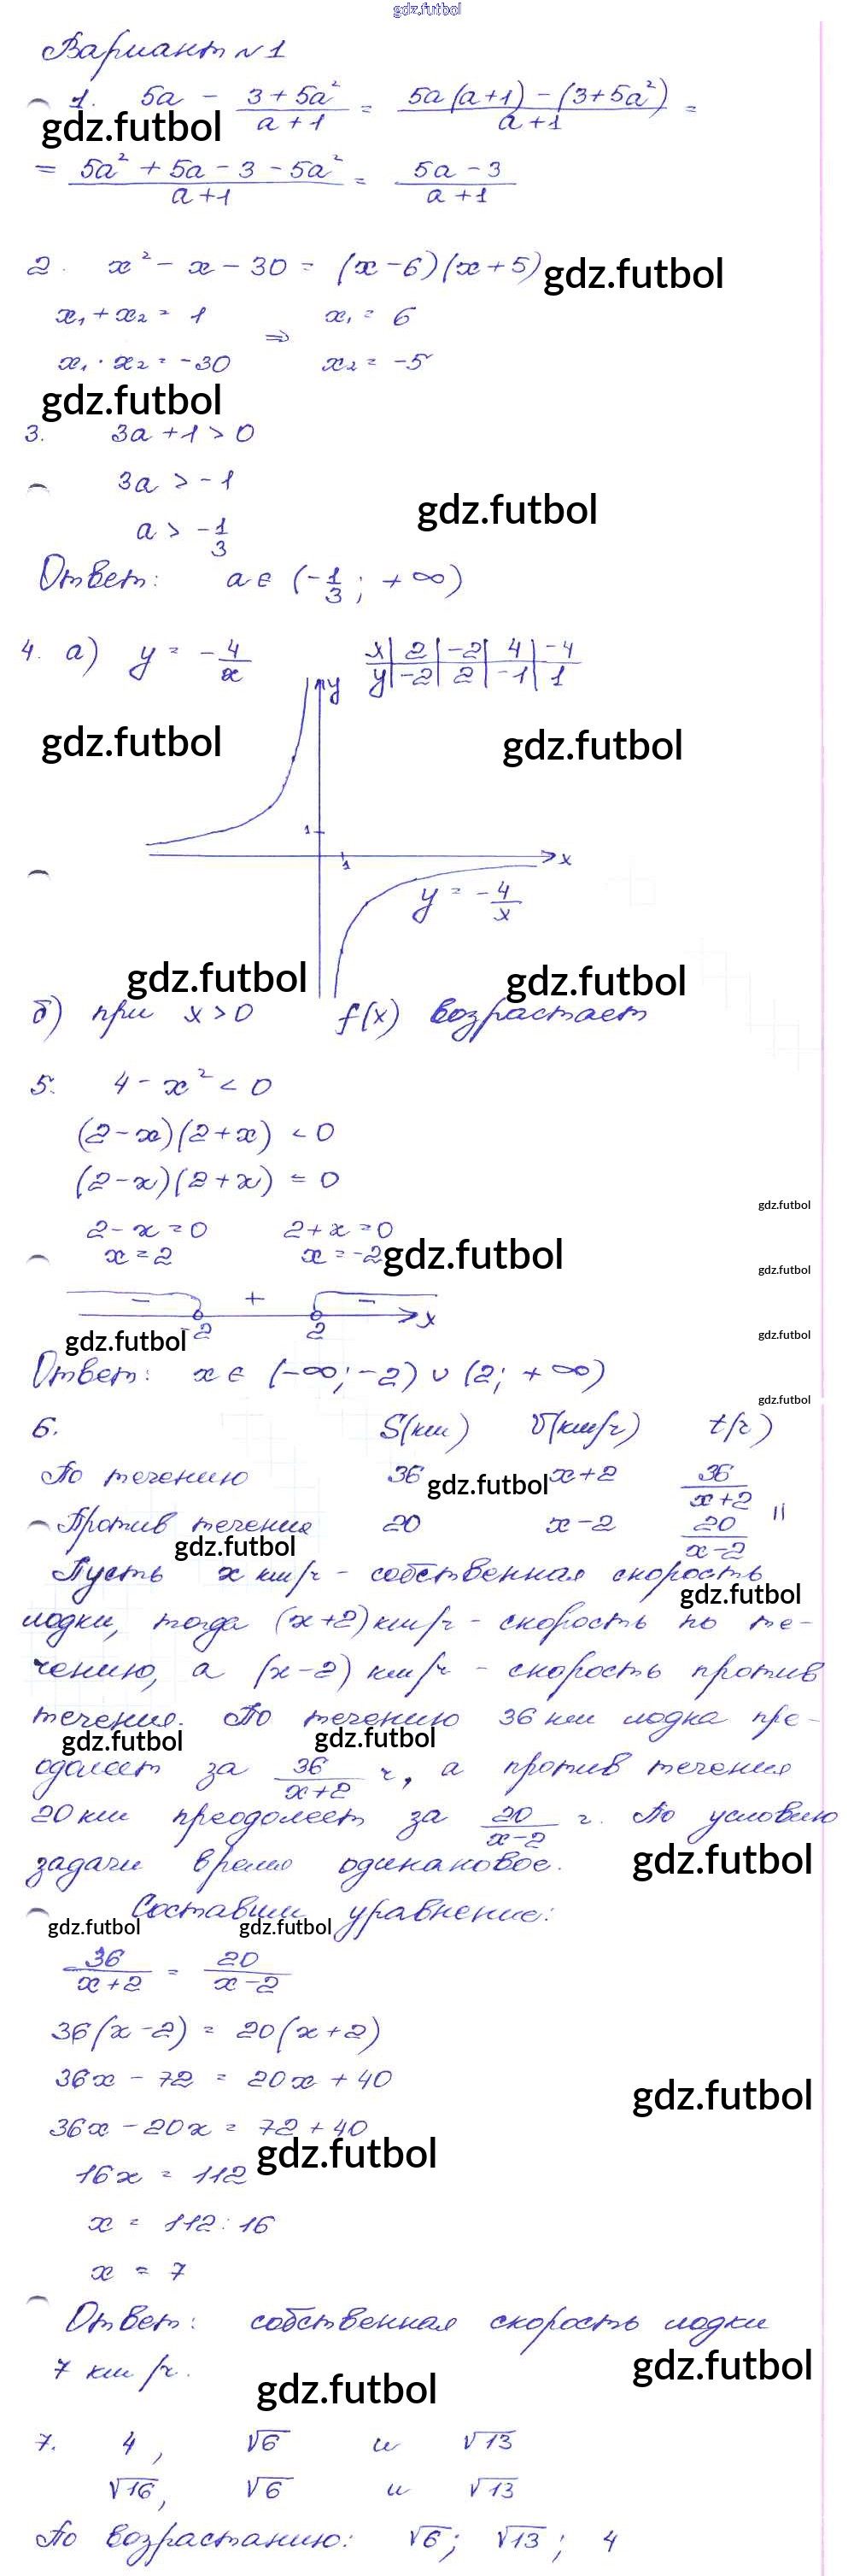 gdz.futbol
Вариант №1
1. 5a - (3 + 5a²)/(a + 1) = (5a(a+1) - (3+5a²))/(a + 1) =
gdz.futbol
= (5a² + 5a - 3 - 5a²)/(a+1) = (5a - 3)/(a + 1)
2. x² - x - 30 = (x - 6)(x + 5) gdz.futbol
x₁ + x₂ = 1 x₁ = 6
⇒
x₁ · x₂ = -30 x₂ = -5
gdz.futbol
3. 3a + 1 > 0
3a > -1
gdz.futbol
a > -1/3
Ответ: a ∈ (-1/3; +∞)
4. а) y = -4/x
x | 2 | -2 | 4 | -4
y | -2 | 2 | -1 | 1
y
gdz.futbol gdz.futbol
1
x
1
y = -4/x
gdz.futbol gdz.futbol
б) при x > 0 f(x) возрастает
5. 4 - x² < 0
(2-x)(2+x) < 0
(2-x)(2+x) = 0
gdz.futbol
2 - x = 0 2 + x = 0
x = 2 x = -2 gdz.futbol
gdz.futbol
- + -
x
-2 2
gdz.futbol gdz.futbol
Ответ: x ∈ (-∞; -2) ∪ (2; +∞)
gdz.futbol
6. S(км) V(км/ч) t(ч)
По течению 36 gdz.futbol x+2 36/(x+2)
=
Против течения 20 x-2 20/(x-2)
gdz.futbol
Пусть x км/ч - собственная скорость
gdz.futbol
лодки, тогда (x+2) км/ч - скорость по те-
чению, а (x-2) км/ч - скорость против
течения. По течению 36 км лодка пре-
gdz.futbol gdz.futbol
одолеет за 36/(x+2) ч, а против течения
20 км преодолеет за 20/(x-2) ч. По условию
задачи время одинаковое. gdz.futbol
Составим уравнение:
gdz.futbol gdz.futbol
36/(x+2) = 20/(x-2)
36(x-2) = 20(x+2)
36x - 72 = 20x + 40
gdz.futbol
36x - 20x = 72 + 40
gdz.futbol
16x = 112
x = 112 : 16
x = 7
Ответ: собственная скорость лодки
7 км/ч. gdz.futbol
gdz.futbol
7. 4, √6 и √13
√16, √6 и √13
По возрастанию: √6; √13; 4